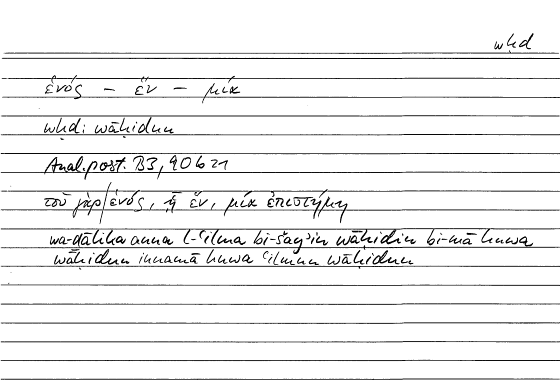 wḥd
ἑνός – ἕν – μία
wḥd: wāḥidun
Anal. post. B3, 90 b 21
τοῦ γὰρ/ἑνός, ᾗ ἕν, μία ἐπιστήμη
wa-ḏālika anna l-ʿilma bi-šayʾin wāḥidin bi-mā huwa
wāḥidun innamā huwa ʿilmun wāḥidun